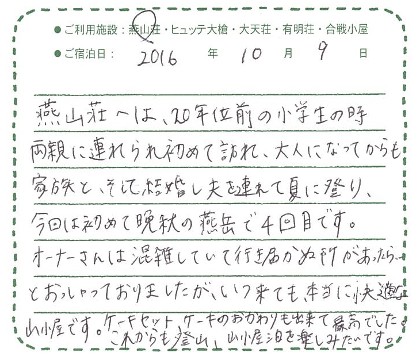 ● ご利用施設：燕山荘・ヒュッテ大槍・大天荘・有明荘・合戦小屋
● ご宿泊日： 2016 年 10 月 9 日
燕山荘へは、20年位前の小学生の時
両親に連れられ初めて訪れ、大人になってからも
家族と、そして結婚し夫を連れて夏に登り、
今回は初めて晩秋の燕岳で4回目です。
オーナーさんは混雑していて行き届かぬ所があったら…
とおっしゃっておりましたが、いつ来ても、本当に快適な
山小屋です。ケーキセット、ケーキのおかわりも出来て最高でした。
これからも登山、山小屋泊を楽しみたいです。